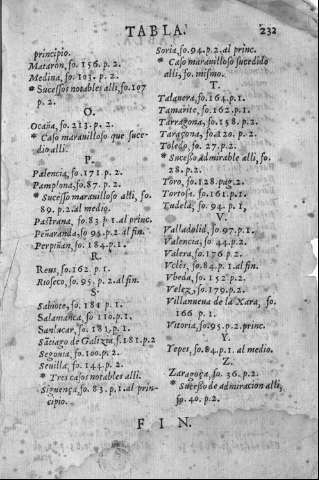 TABLA. 232
principio.
Mataròn, fo. 156. p. 2.
Medina, fo. 103. p. 2.
* Sucessos notables alli, fo. 107
p. 2.
O.
Ocaña, fo. 213. p. 2.
* Caso marauilloso que suce-
dio alli.
P.
Palencia, fo. 171 p. 2.
Pamplona, fo. 87. p. 2.
* Sucesso marauilloso alli, fo.
89. p. 2. al medio.
Pastrana, fo. 83 p. 1. al princ.
Peñaranda, fo 94. p. 2 al fin.
Perpiñan, fo. 184. p. 1.
R.
Reus, fo. 162. p. 1.
Rioseco, fo. 95. p. 2. al fin.
S.
Sabiote, fo. 184 p. 1.
Salamanca, fo 110. p. 1.
Sanlucar, fo. 183. p. 1.
Sãtiago de Galizia, f. 181. p. 2
Segouia, fo. 100. p. 2.
Seuilla, fo. 144. p. 2.
* Tres casos notables alli.
Siguença, fo. 83. p. 1. al prin-
cipio.
Soria, fo. 94. p. 2. al princ.
* Caso marauilloso sucedido
alli, fo. mismo.
T.
Talauera, fo. 164. p. 1.
Tamarite, fo. 162. p. 1.
Tarragona, fo. 158. p. 2.
Taraçona, fo. 120. p. 2.
Toledo, fo. 27. p. 2.
* Sucesso admirable alli, fo.
28. p. 2.
Toro, fo. 128. pag. 2.
Tortosa, fo. 161. p. 1.
Tudela, fo. 94. p. 1.
V.
Valladolid, fo. 97. p. 1.
Valencia, fo 44. p. 2.
Valera, fo. 176 p. 2.
Vclès, fo. 84. p. 1. al fin.
Vbeda, fo. 152. p. 2.
Velez, fo. 179. p. 2.
Villanueua de la Xara, fo.
166 p. 1.
Vitoria, fo. 95. p. 2. princ.
Y.
Yepes, fo. 84. p. 1. al medio.
Z.
Zaragoça, fo. 36. p. 2.
* Sucesso de admiracion alli,
fo. 40. p. 2.
FIN.